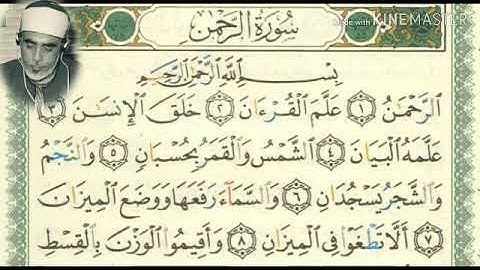 made with KINEMASTER
سُورَةُ الرَّحْمٰن
بِسْمِ ٱللَّهِ ٱلرَّحْمَٰنِ ٱلرَّحِيمِ
ٱلرَّحْمَٰنُ ١ عَلَّمَ ٱلْقُرْءَانَ ٢ خَلَقَ ٱلْإِنسَٰنَ ٣
عَلَّمَهُ ٱلْبَيَانَ ٤ ٱلشَّمْسُ وَٱلْقَمَرُ بِحُسْبَانٍ ٥ وَٱلنَّجْمُ
وَٱلشَّجَرُ يَسْجُدَانِ ٦ وَٱلسَّمَآءَ رَفَعَهَا وَوَضَعَ ٱلْمِيزَانَ
٧ أَلَّا تَطْغَوْا۟ فِى ٱلْمِيزَانِ ٨ وَأَقِيمُوا۟ ٱلْوَزْنَ بِٱلْقِسْطِ